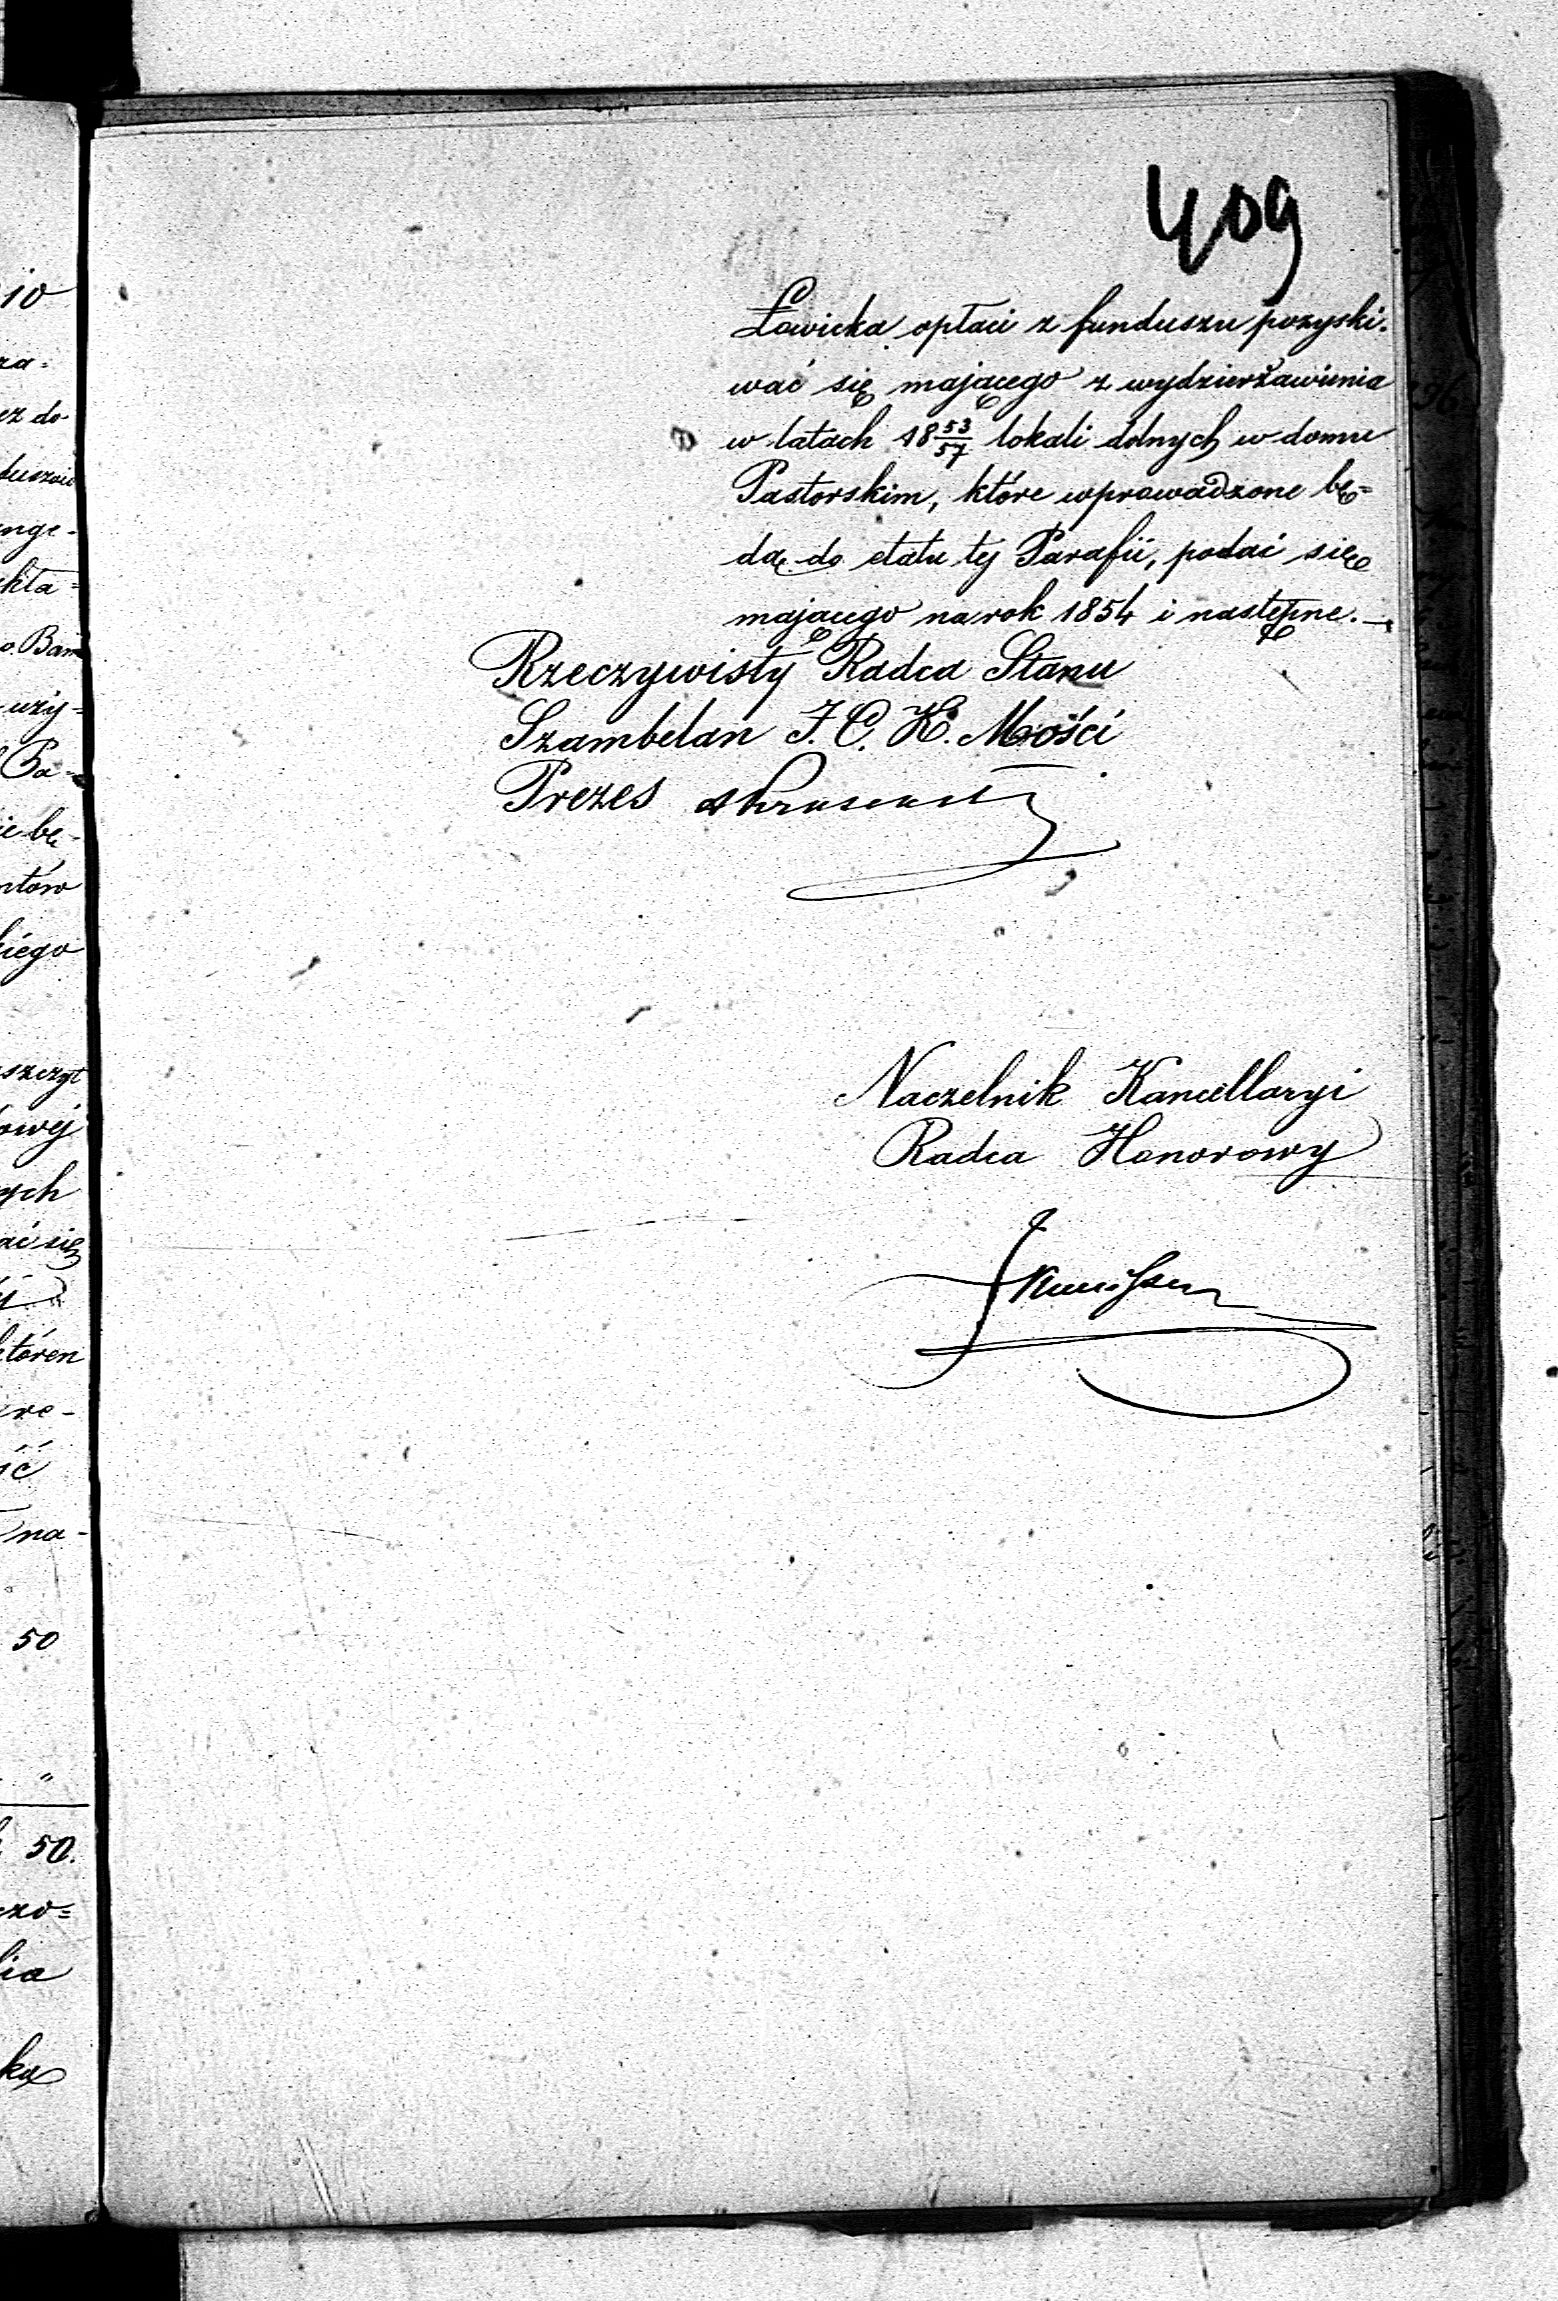 10
za=
ez do
duszow
ange-
kła=
o. Ban
uży=
Pa=
ie bę-
ntów
kiego
szczyt
owej
ych
ać się
któren
ere-
ść
na-
50
"
50.
czo=
lia
ka
409
Ławicka opłaci z funduszu pozyski-
wać się mającego z wydzierżawienia
w latach 18 53/57 lokali dolnych w domu
Pastorskim, które wprowadzone bę=
dą do etatu tej Parafii, podać się
mającego na rok 1854 i następne.—
Rzeczywisty Radca Stanu
Szambelan J. C. K. Mości
Prezes
Naczelnik Kancellaryi
Radca Honorowy